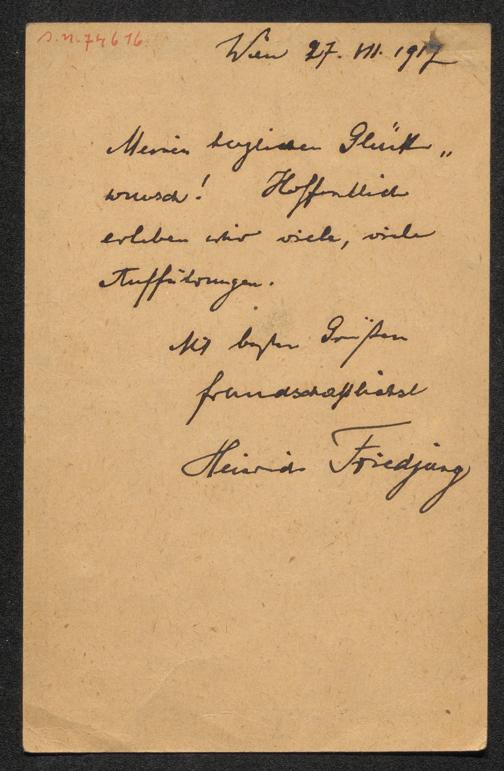 I.N. 74616
Wien 27. VII. 1917
Meinen herzlichen Glück„
wunsch! Hoffentlich
erleben wir viele, viele
Aufführungen.
Mit besten Grüßen
freundschaftlichst
Heinrich Friedjung